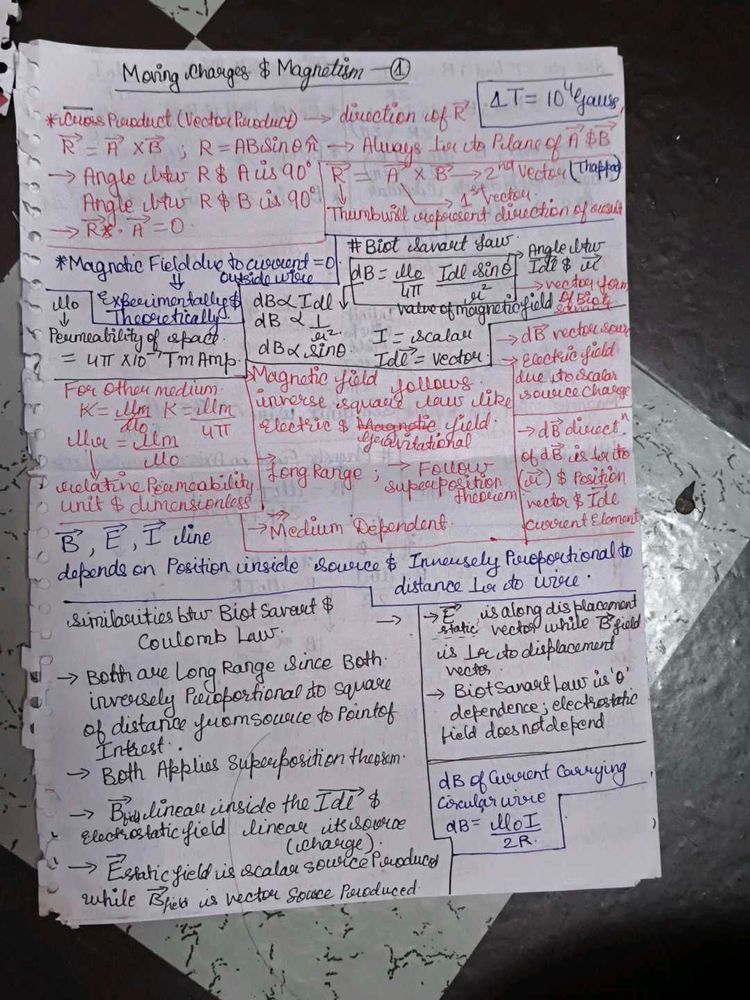 Moving Charges & Magnetism - ①
1T = 10⁴ Gauss
* Cross Product (Vector Product) → direction of R⃗
R⃗ = A⃗ × B⃗ ; R = AB sinθ n̂ → Always ⊥r to Plane of A⃗ & B⃗
→ Angle btw R & A is 90°
Angle btw R & B is 90°
→ R⃗ · A⃗ = 0
R⃗ = A⃗ × B⃗ → 2nd Vector (Thappad)
1st Vector
Thumb will represent direction of result
* Magnetic Field due to current = 0
outside wire
Experimentally &
Theoretically
μ₀
↓
Permeability of space
= 4π × 10⁻⁷ Tm Amp
# Biot Savart Law
dB = μ₀/4π Idl sinθ/r²
→ Angle btw
Idl⃗ & r⃗
→ vector form
of Biot
Savart
value of magnetic field
dB ∝ Idl
dB ∝ 1/r²
dB ∝ sinθ
I = scalar
Idl⃗ = vector
→ dB⃗ vector sour
→ Electric field
due to scalar
source charge
For other medium
K = μm/μ₀ K = μm/4π
μr = μm/μ₀
relative Permeability
unit & dimensionless
→ Magnetic field follows
inverse square law like
electric & Magnetic field
Gravitational
→ Long Range ; → Follow
superposition
theorem
→ Medium Dependent
→ dB⃗ directⁿ
of dB⃗ is ⊥r to
(r⃗) & Position
vector & Idl⃗
Current Element
B⃗, E⃗, I⃗ line
depends on Position inside source & Inversely Proportional to
distance ⊥r to wire.
Similarities btw Biot Savart &
Coulomb Law.
→ Both are Long Range since Both
inversely Proportional to square
of distance from source to Point of
Intrest.
→ Both Applies superposition theorem.
→ B⃗field linear inside the Idl⃗ &
Electrostatic field linear its source
(charge).
→ E⃗static field is scalar source Produced
while B⃗field is vector source Produced.
→ → E⃗static is along displacement
vector while B⃗ field
is ⊥r to displacement
vector.
→ Biot Savart Law is 'θ'
dependence ; electrostatic
field does not depend
dB of Current Carrying
Circular wire
dB = μ₀I/2R